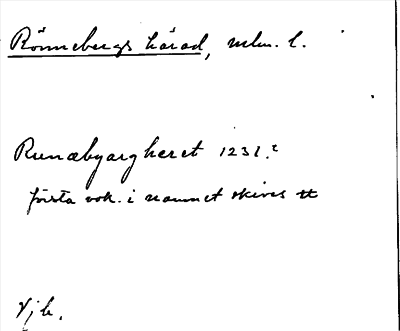 Rönnebergs härad, mlm. l.
Runæbyargheret 1231.
första vok. i namnet skives
Vjb.